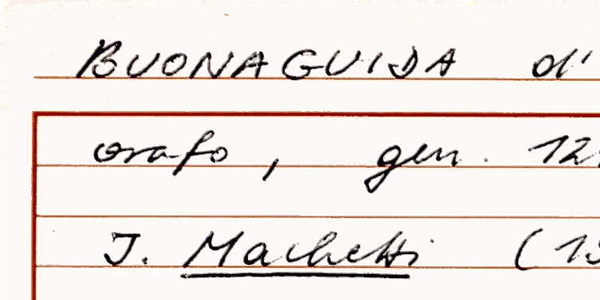 BUONAGUIDA d'
orafo, gen. 12
I. Machetti (19